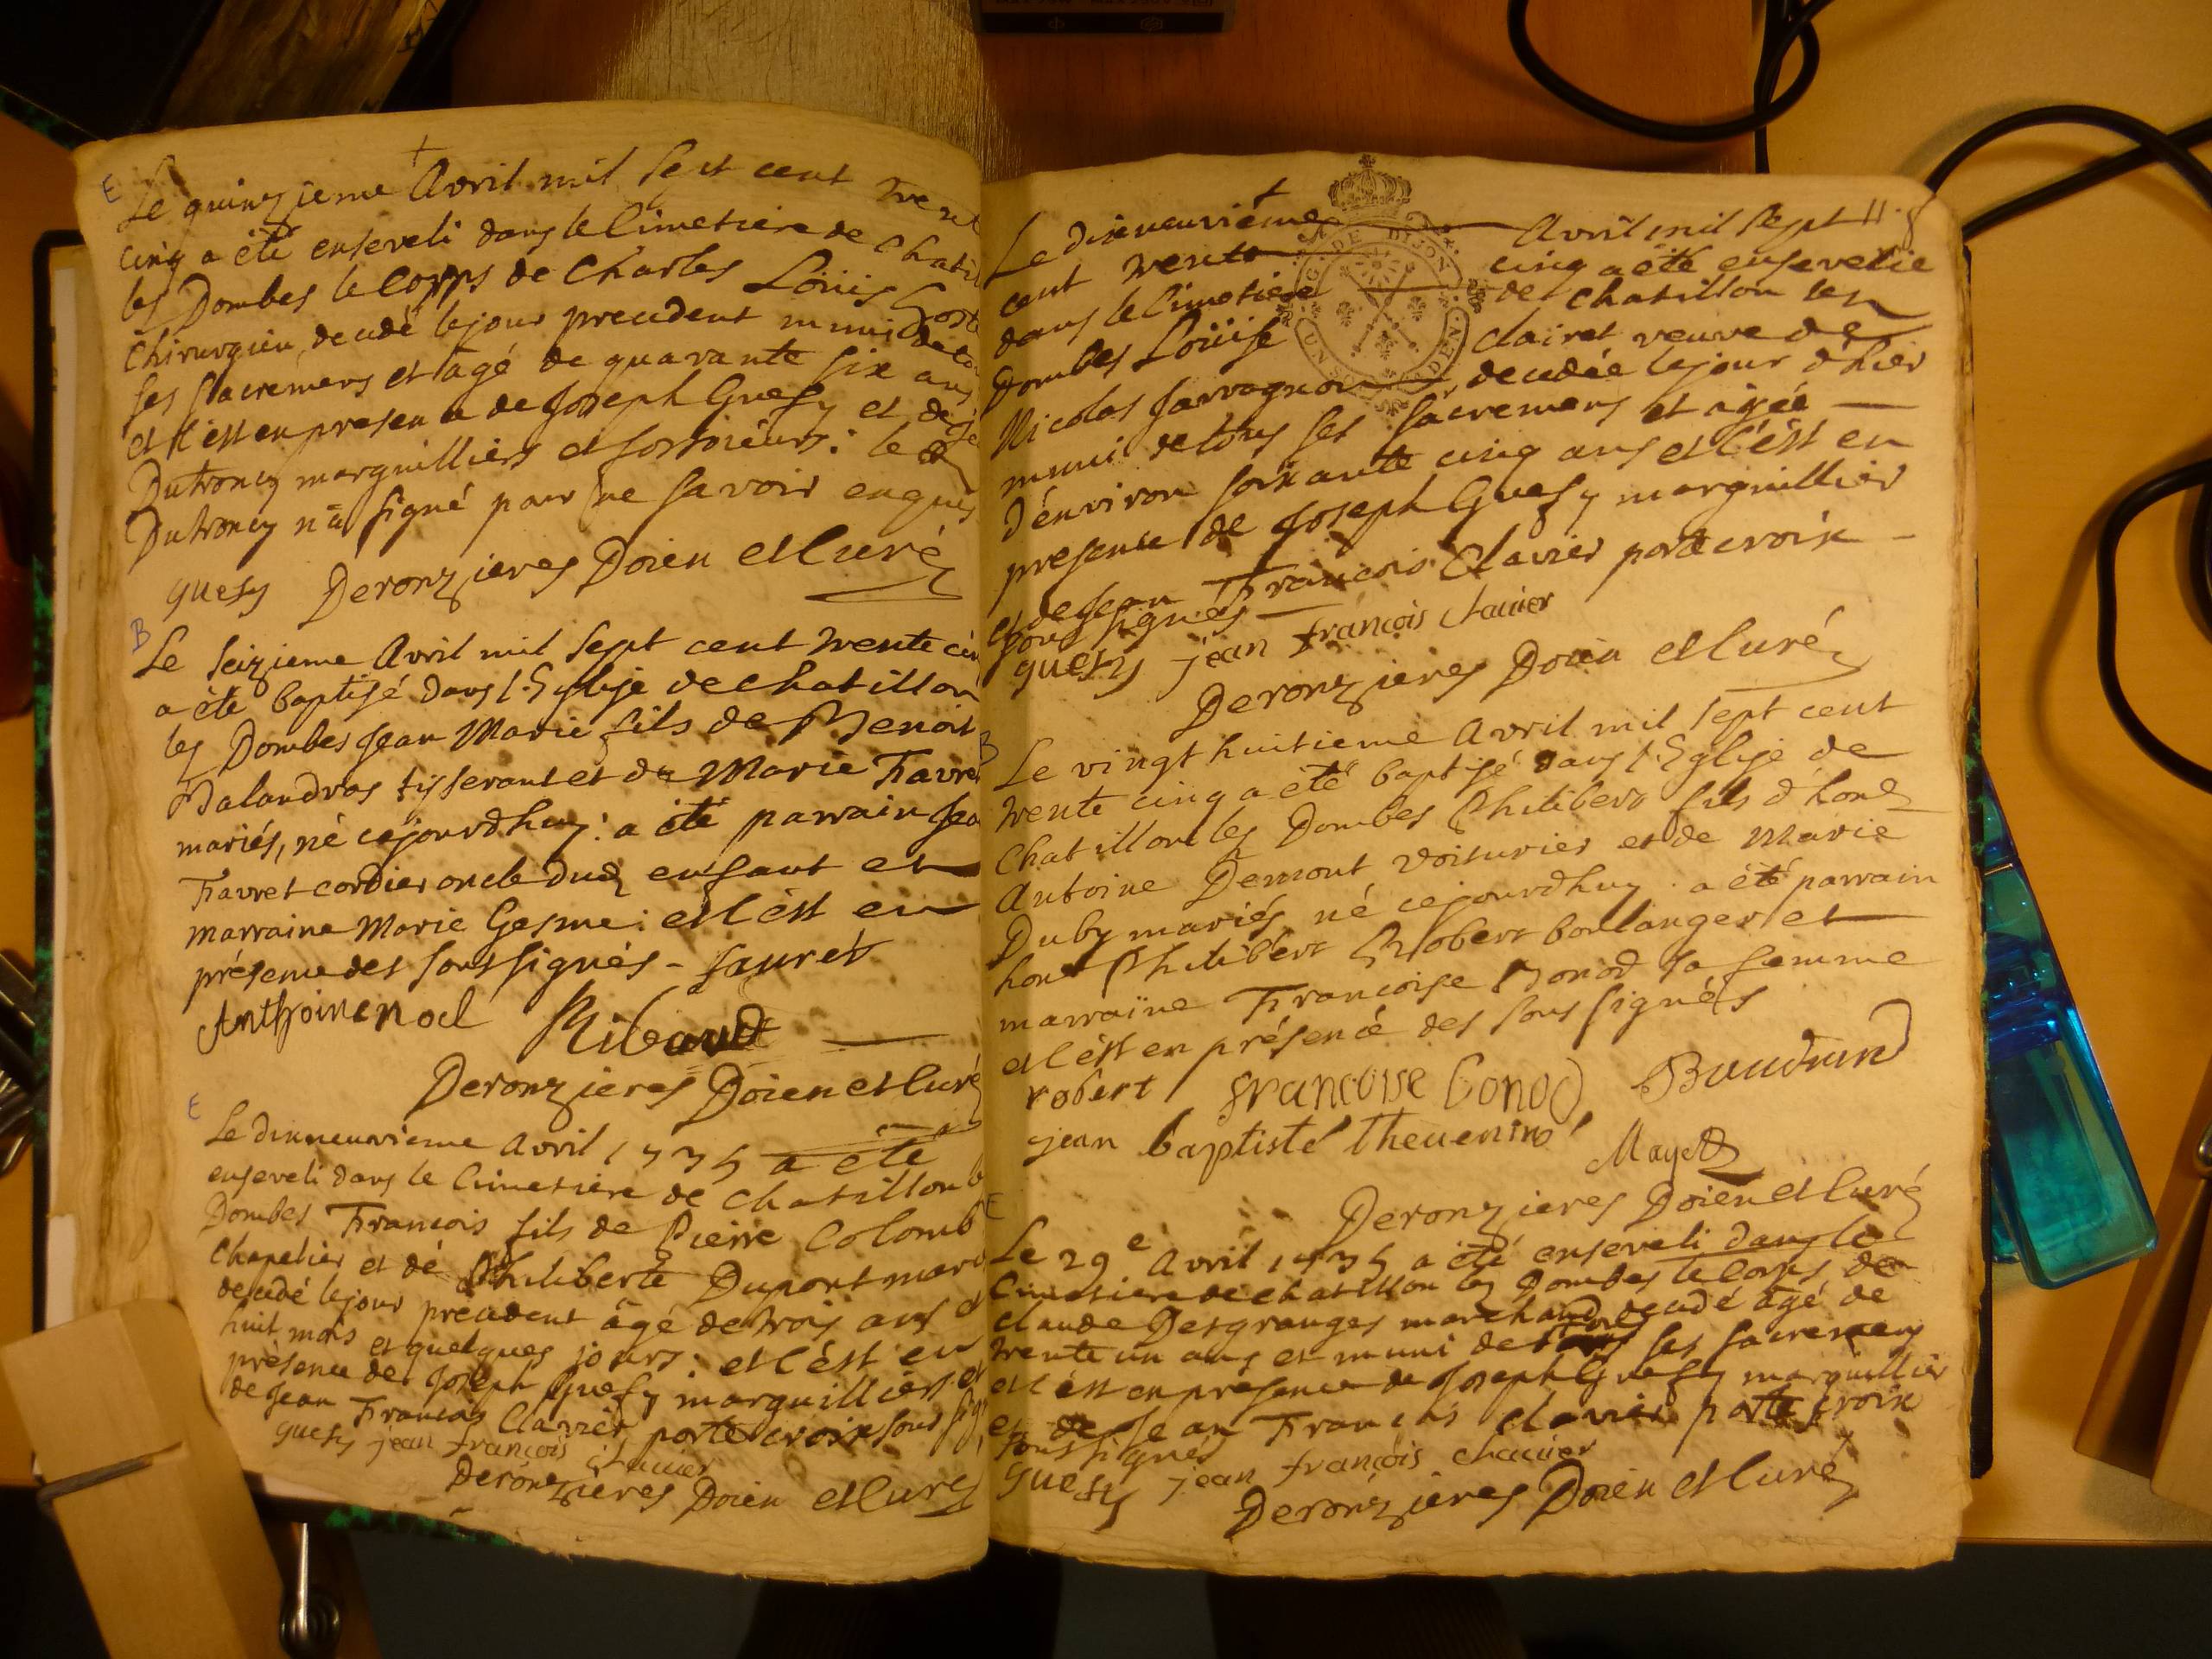 E
Le quinzieme Avril mil sept cent
cinq a été enseveli dans le Cimetiere de
les Dombes le corps de Charles Löüis
Chirurgien, decedé lejour precedent muni
ses sacremens et âgé de quarante six ans
et c'est en presence de Joseph Guesy et de
Dutroncy marguilliers et fossoieurs: le
Dutroncy n'a signé pour ne savoir enquis
guesy Deronzieres Doien et Curé
B
Le seizieme Avril mil sept cent trente
a été baptisé dans l'Eglise de chatillon
les Dombes Jean Marie fils de Benoit
Balandras tisserant et de Marie
mariés, né cejourdhuy: a été parrain
Favret cordier oncle dud enfant et
marraine Marie Gesme: et c'est en
présence des soussignés - fauret
Anthoine noel Ribaud
Deronzieres Doien et Curé
E
Le dixneuvieme Avril 1735 a été
enseveli dans le Cimetiere de Chatillon
Dombes François fils de Pierre
Chapelier et dé Philiberte Dupont
decedé lejour precedent âgé de trois ans
huit mois et quelques jours: et c'est en
présence de Joseph Guesy marguillier et
de Jean François Clavier porte croix
guesy jean françois clauier
Deronzieres Doien et Curé
Le dixneuvième Avril mil sept
cent trente cinq a été ensevelie
dans le Cimetiere de Chatillon les
Dombes Löüise clairet veuve de
Nicolas decedée lejour d'hier
muni de tous ses sacremens et âgée
d'environ soixante cinq ans et c'est en
presence de Joseph Guesy marguillier
et de Jean François Clavier porte croix
sous signés
guesy jean françois clauier
Deronzieres Doien et Curé
B
Le vingt huitieme Avril mil sept cent
trente cinq a été baptisé dans l'Eglise de
Chatillon les Dombes Philibert fils d'hon
Antoine Demont voiturier et de Marie
Duby mariés, né cejourdhuy: a été parrain
hont Philibert Robert boulanger et
marraine Françoise Bonod sa femme
et c'est en présence des sous signés
robert francoise bonod Baudrand
jean baptiste Theuenin
Mayet
Deronzieres Doien et Curé
E
Le 29e Avril 1735 a été enseveli dans le
Cimetiere de chatillon les Dombes le corps de
claude Desgranges marchand, decedé âgé de
trente un ans et muni de tous ses sacremens
et c'est en présence de Joseph Guesy marguillier
et de Jean François clavier porte croix
sous signés
guesy jean françois clauier
Deronzieres Doien et Curé